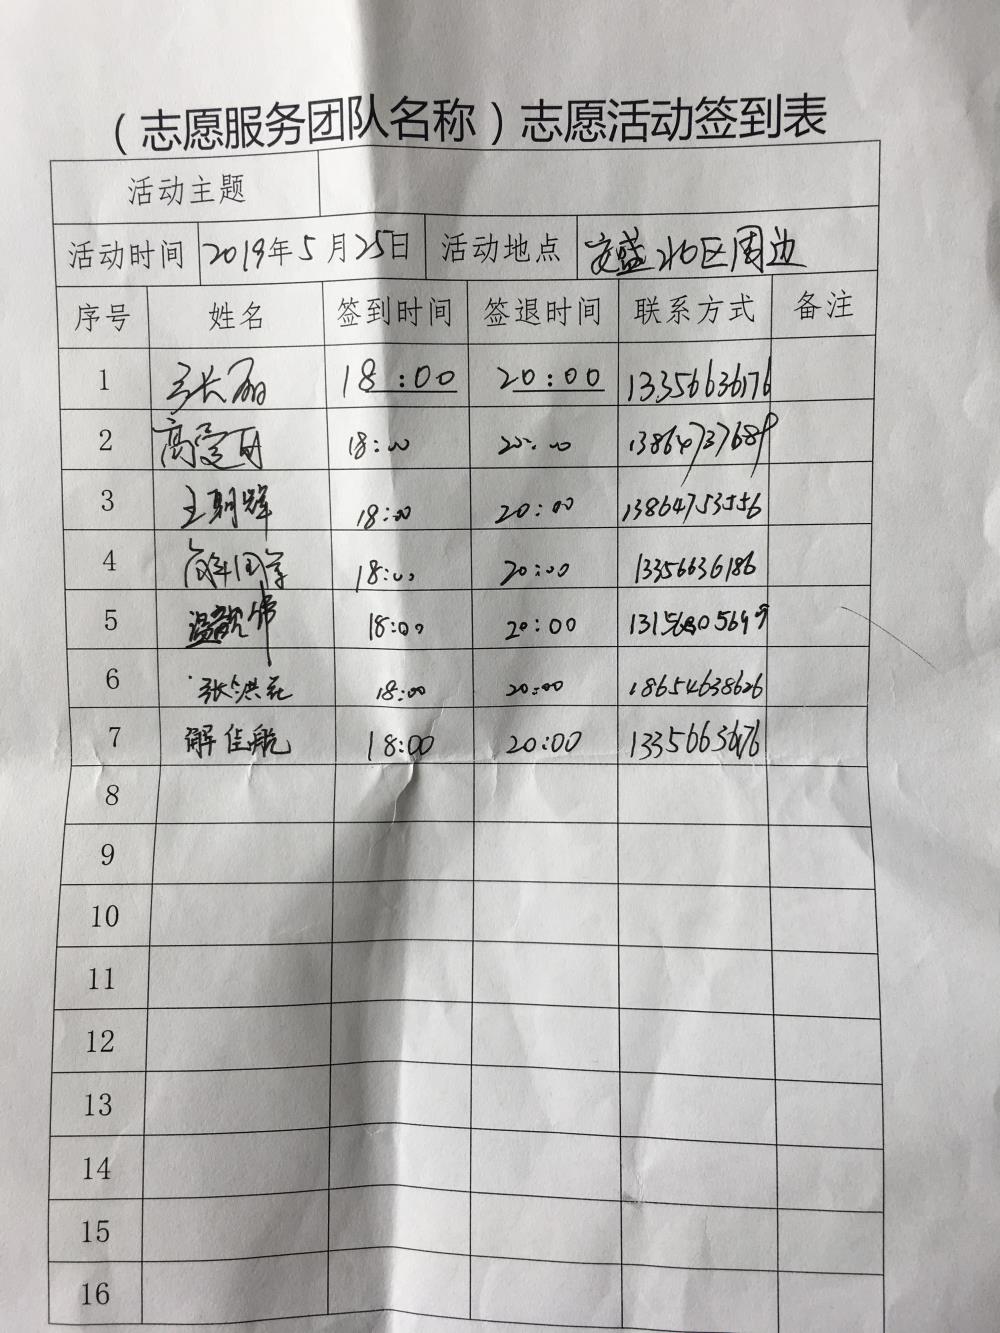 （志愿服务团队名称）志愿活动签到表
活动主题
活动时间 2019年5月25日 活动地点 安盛北区周边
序号 姓名 签到时间 签退时间 联系方式 备注
1 张丽 18:00 20:00 13356636176
2 18:00 20:00 13864737689
3 王朝辉 18:00 20:00 13864753556
4 18:00 20:00 13356636186
5 18:00 20:00
6 张洪花 18:00 20:00 18654638626
7 解佳航 18:00 20:00 13356636176
8
9
10
11
12
13
14
15
16